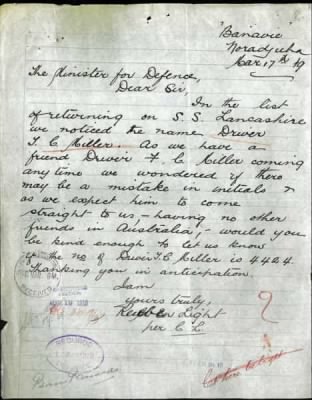 "Banavie"
Noradjuha
Mar 17th 19
The Minister for Defence,
Dear Sir,
In the list
of returning on S.S. Lancashire
we noticed the name Driver
T. C. Miller. As we have a
friend Driver F. C. Miller coming
any time we wondered if there
may be a mistake in initials &
as we expect him to come
straight to us, - having no other
friends in Australia, - would you
be kind enough to let us know
if the No of Driver T. C. Miller is 4424.
Thanking you in anticipation.
I am
yours truly,
Reuben Light
per C. L.